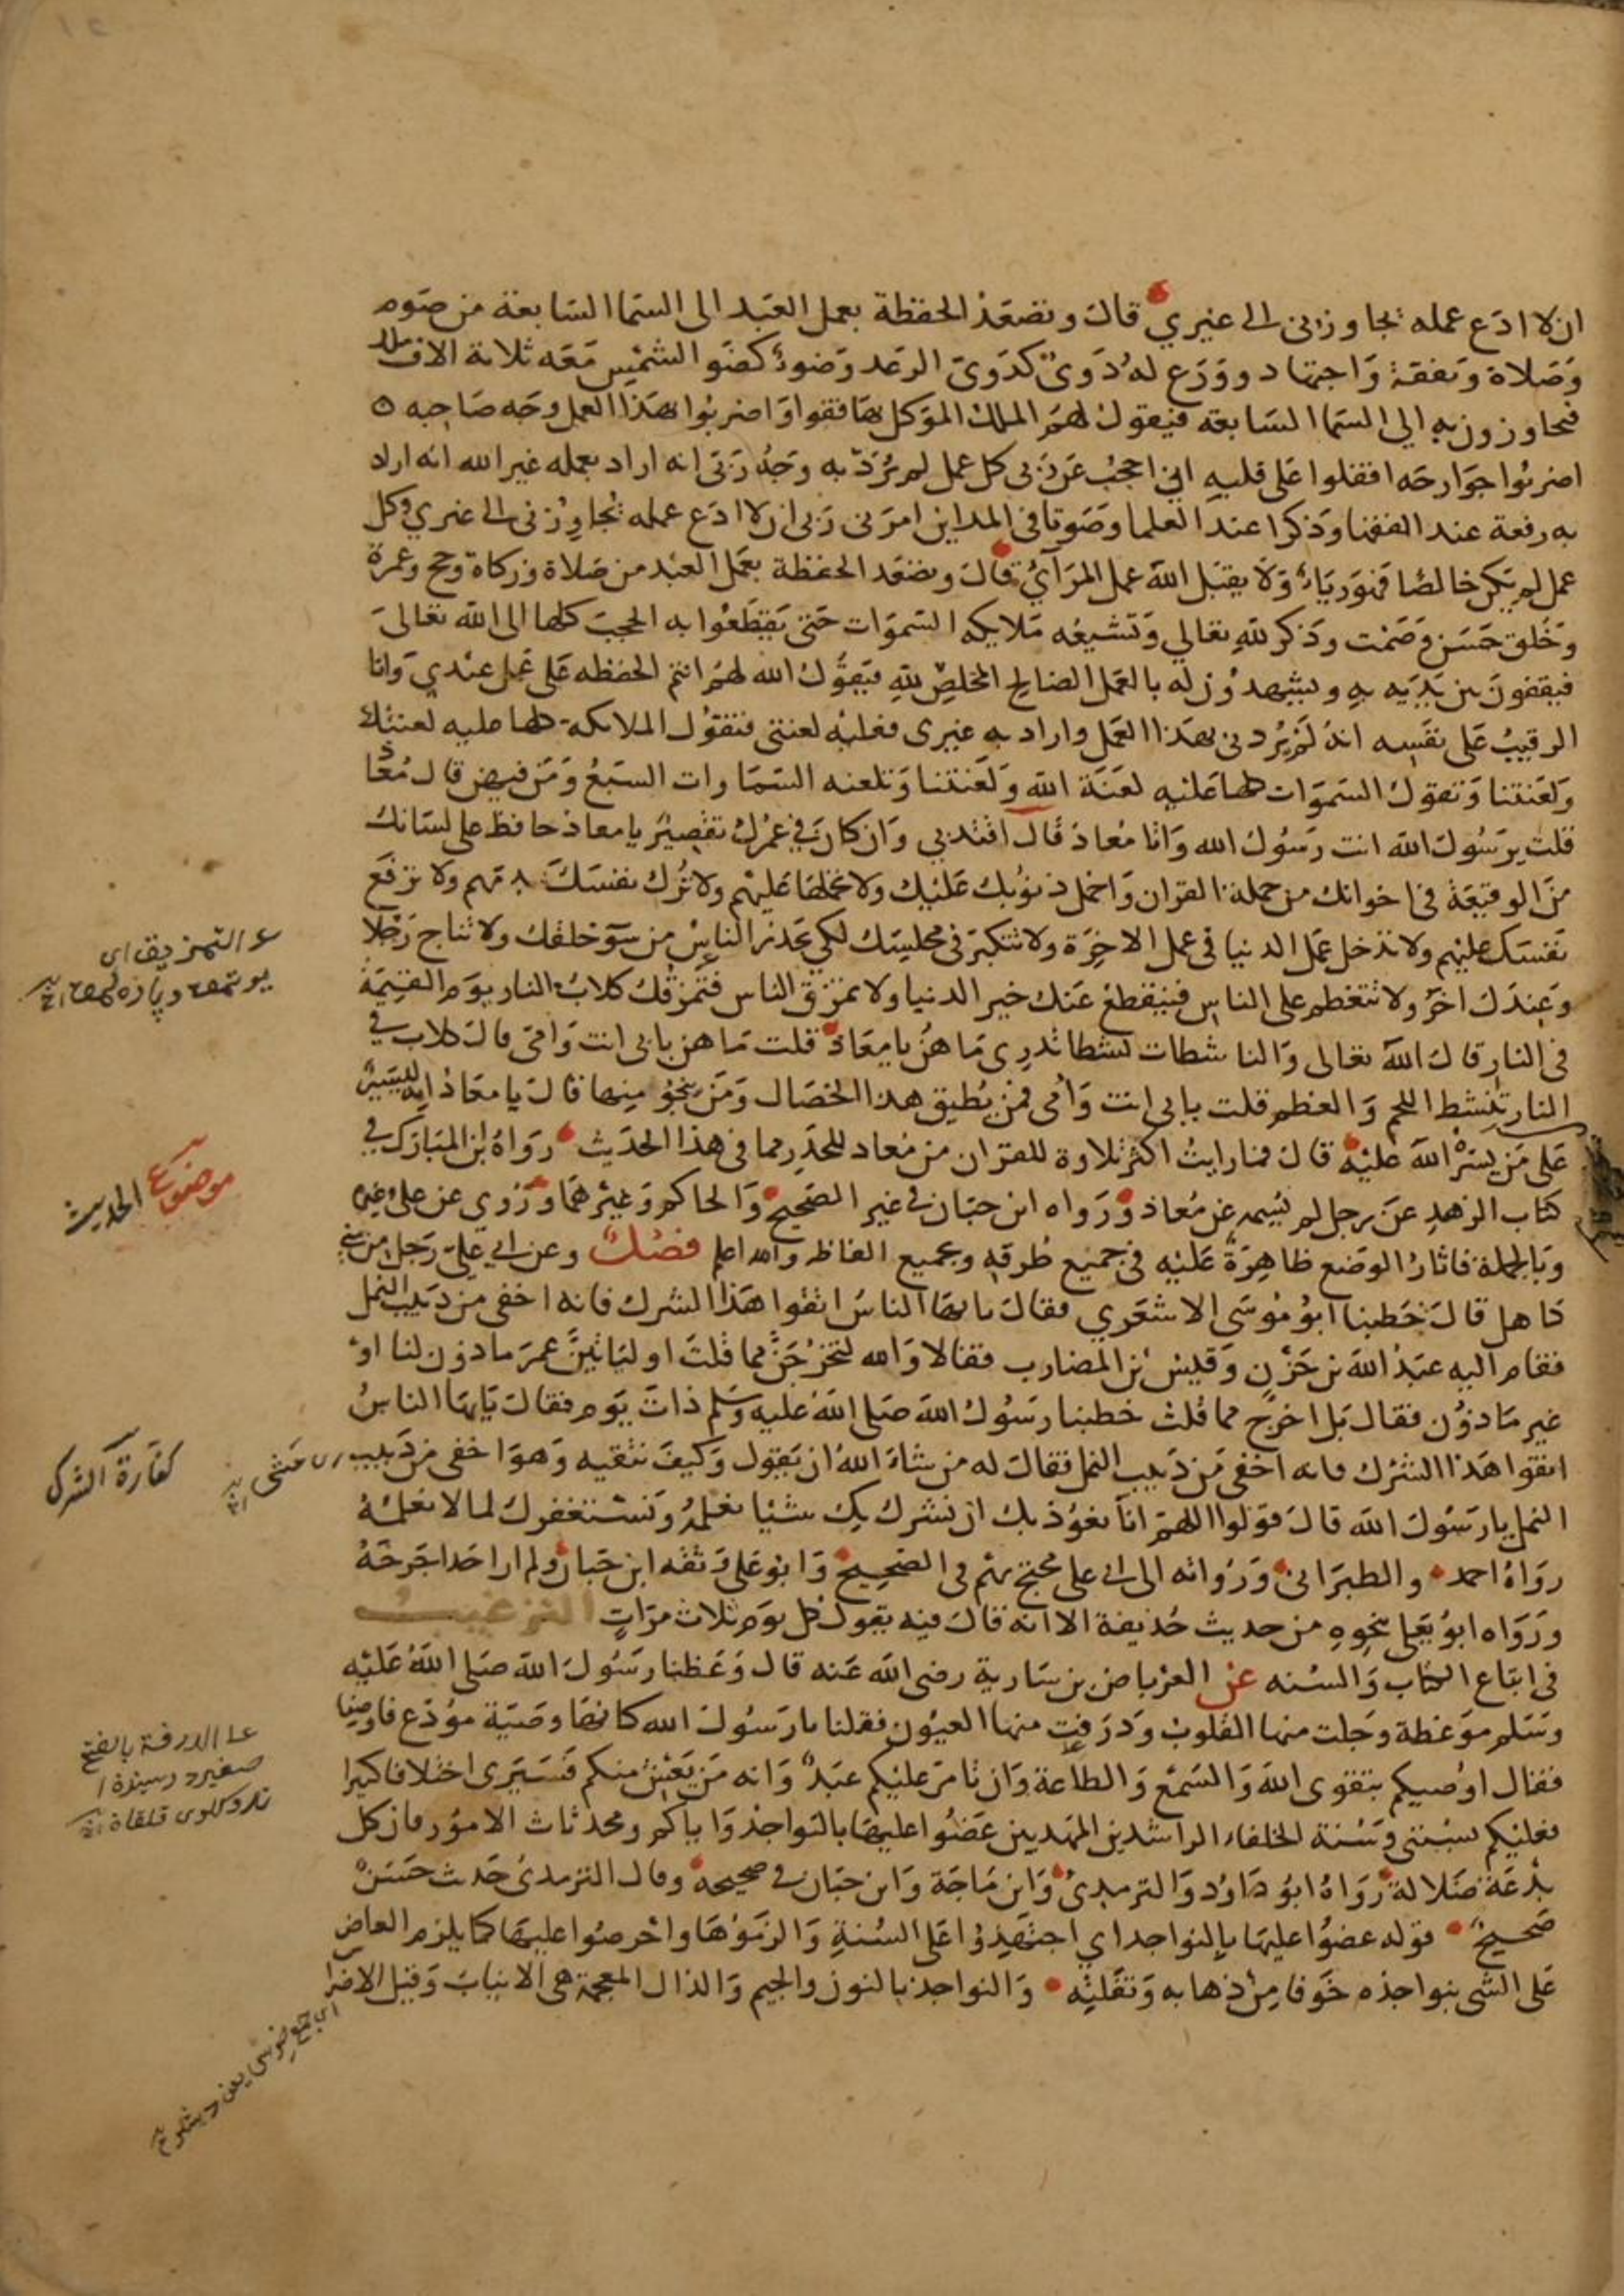 ان لا ادع عمله يجاوزنى الى غيري قال وتصعد الحفظة بعمل العبد الى السما السابعة من صوم
وصلاة ونفقة واجتهاد وورع له دوى كدوى الرعد وضوء كضو الشمس معه ثلاثة الاف ملك
فيجاوزون به الي السما السابعة فيقول لهم الملك الموكل بها قفوا واضربوا بهذا العمل وجه صاحبه
اضربوا جوارحه اقفلوا على قلبه انى احجب عن ربى كل عمل لم يرد به وجه ربى انه اراد بعمله غير الله انه اراد
به رفعة عند الفقها وذكرا عند العلما وصوتا فى المداين امرنى ربى ان لا ادع عمله يجاوزنى الى غيري وكل
عمل لم يكن خالصا فهو رياء ولا يقبل الله عمل المرآئي قال وتصعد الحفظة بعمل العبد من صلاة وزكاة وحج وعمرة
وخلق حسن وصمت وذكر لله تعالي وتشيعه ملايكه السموات حتى يقطعوا به الحجب كلها الى الله تعالى
فيقفون بين يديه به ويشهدون له بالعمل الصالح المخلص لله فيقول الله لهم انتم الحفظه على عمل عبدي وانا
الرقيب على نفسه انه لم يردنى بهذا العمل واراد به غيرى فعليه لعنتى فتقول الملائكة كلها عليه لعنتك
ولعنتنا وتقول السموات كلها عليه لعنة الله ولعنتنا وتلعنه السماوات السبع ومن فيهن قال معاذ
قلت يرسول الله انت رسول الله وانا معاذ قال اقتد بي وان كان في عمرك تقصير يا معاذ حافظ على لسانك
من الوقيعة فى اخوانك من حملة القران واحمل ذنوبك عليك ولا تحملها عليهم ولا تزك نفسك بذمهم ولا ترفع
نفسك عليهم ولا تدخل عمل الدنيا فى عمل الاخرة ولا تتكبر فى مجلسك لكي يحذر الناس من سوء خلقك ولا تناج رجلا
وعندك اخر ولا تتعظم على الناس فينقطع عنك خير الدنيا ولا تمزق الناس فتمزقك كلاب النار يوم القيمة
فى النار قال الله تعالى والناشطات نشطا تدرى ما هن يا معاذ قلت ما هن بابى انت وامى قال كلاب في
النار تنشط اللحم والعظم قلت بابى انت وامى فمن يطيق هذا الخصال ومن ينجو منها قال يا معاذ انه ليسير
على من يسره الله عليه قال فما رايت اكثر تلاوة للقران من معاد للحذر مما فى هذا الحديث رواه ابن المبارك في
كتاب الزهد عن رجل لم يسمه عن معاذ ورواه ابن حبان فى غير الصحيح والحاكم وغيرهما وروي عن علي وغيره
وبالجملة فاثار الوضع ظاهرة عليه فى جميع طرقه وبجميع الفاظه والله اعلم فصل وعن ابي علي رجل من بني
كاهل قال خطبنا ابو موسى الاشعري فقال يا ايها الناس اتقوا هذا الشرك فانه اخفى من دبيب النمل
فقام اليه عبد الله بن حزن وقيس بن المضارب فقالا والله لتخرجن مما قلت او لناتين عمر ماذون لنا او
غير ماذون فقال بل اخرج مما قلت خطبنا رسول الله صلى الله عليه وسلم ذات يوم فقال يايها الناس
اتقوا هذا الشرك فانه اخفى من دبيب النمل فقال له من شاء الله ان يقول وكيف نتقيه وهو اخفى من دبيب
النمل يا رسول الله قال قولوا اللهم انا نعوذ بك ان نشرك بك شيئا نعلمه ونستغفرك لما لا نعلمه
رواه احمد والطبرانى ورواته الى ابى على محتج بهم فى الصحيح وابو على وثقه ابن حبان ولم ار احدا جرحه
ورواه ابو يعلى بنحوه من حديث حذيفة الا انه قال فيه يقول كل يوم ثلاث مرات الترغيب
فى اتباع الكتاب والسنه عن العرباض بن سارية رضى الله عنه قال وعظنا رسول الله صلى الله عليه
وسلم موعظة وجلت منها القلوب ودرفت منها العيون فقلنا يا رسول الله كانها وصية مودع فاوصنا
فقال اوصيكم بتقوى الله والسمع والطاعة وان تامر عليكم عبد وانه من يعش منكم فسيرى اختلافا كثيرا
فعليكم بسنتى وسنة الخلفاء الراشدين المهديين عضوا عليها بالنواجذ واياكم ومحدثات الامور فان كل
بدعة ضلالة رواه ابو داود والترمدى وابن ماجة وابن حبان فى صحيحه وقال الترمدى حديث حسن
صحيح قوله عضوا عليها بالنواجد اي اجتهدوا على السنة والزموها واحرصوا عليها كما يلزم العاض
على الشى بنواجذه خوفا من ذهابه وتفلته والنواجذ بالنون والجيم والذال المعجمة هى الانياب وقيل الاضراس
التمزيق اى
موضوع الحديث
كفارة الشرك
اى مشى
الدرفة بالفتح